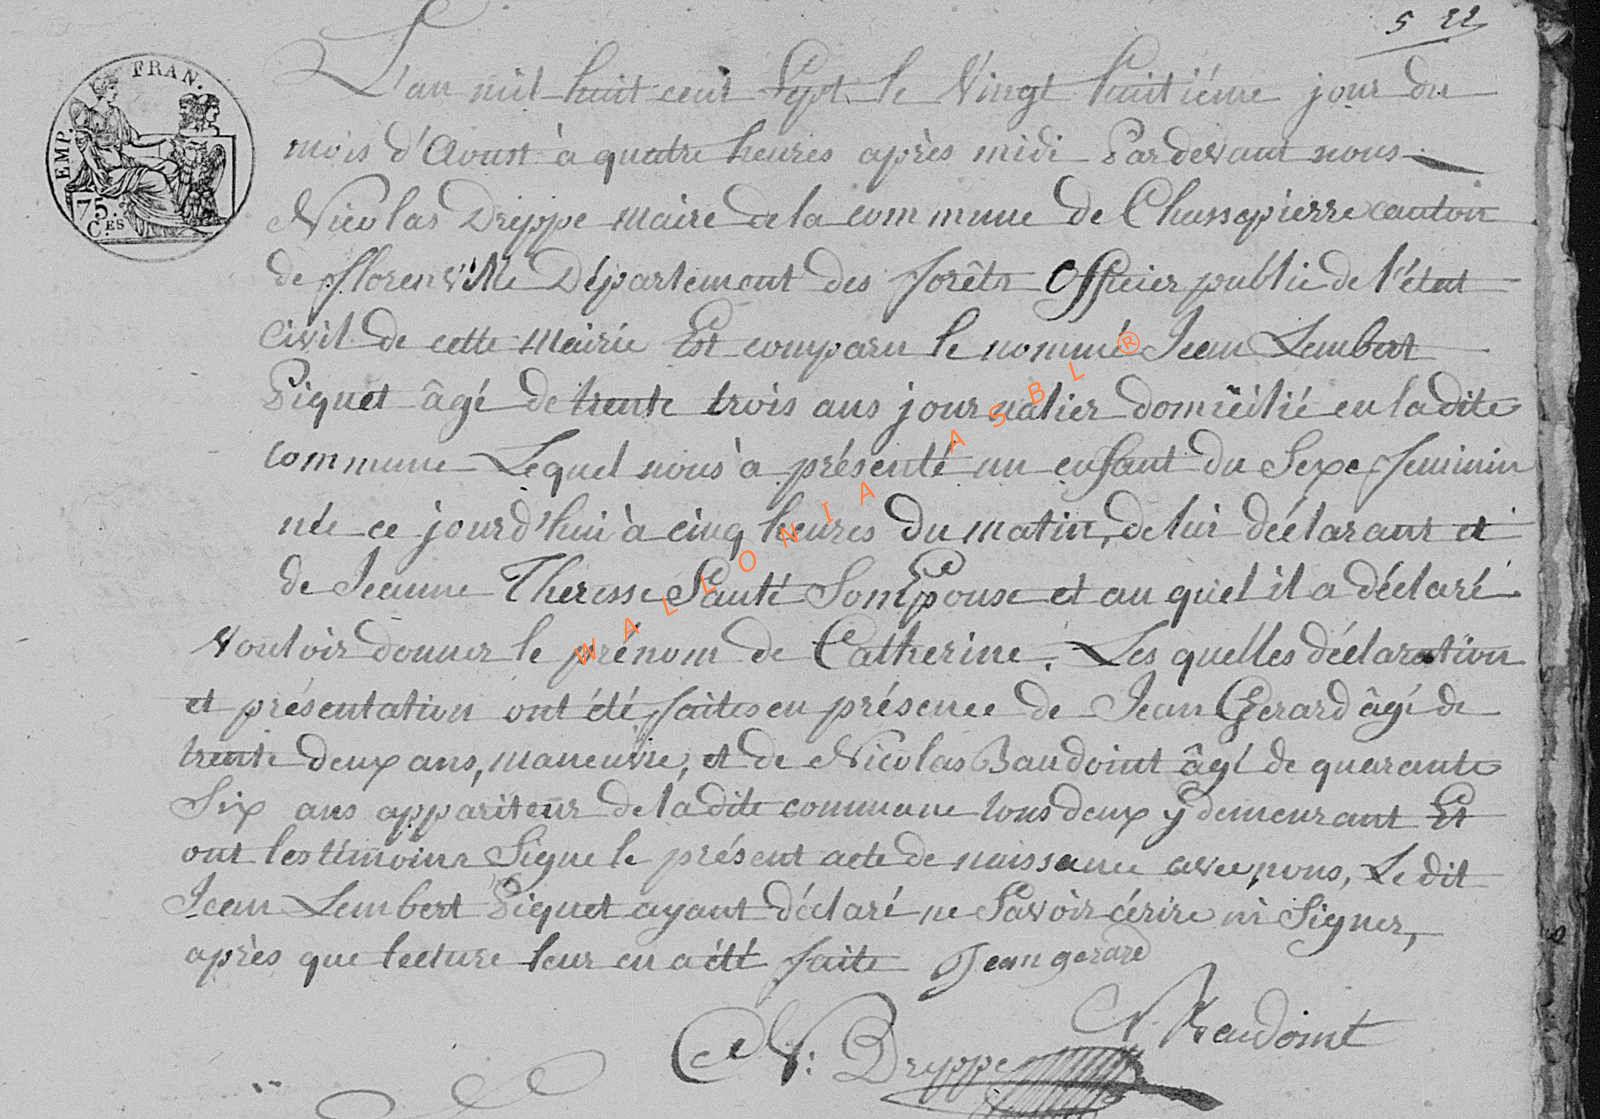 5 22
EMP. FRAN.
75.
C.ES
L'an mil huit cent Sept le Vingt huitiéme jour du
mois d'Aoust à quatre heures après midi Pardevant nous
Nicolas Dreppe Maire de la commune de Chassepierre canton
de fflorenville Département des forêts Officier public de l'état
Civil de cette Mairie Est comparu le nommé Jean Lembert
Piquet âgé de trente trois ans journalier domicilié en la dite
commune Lequel nous à présenté un enfant du Sexe feminin
née ce jourd'hui à cinq heures du matin, de lui déclarant et
de Jeanne Theresse Santé Son Epouse et au quel il a déclaré
Vouloir donner le prénom de Catherine. Les quelles déclaration
et présentation ont été faites en présence de Jean Gerard âgé de
trente deux ans, maneuvre, et de Nicolas Baudoint âgé de quarante
Six ans appariteur de la dite commune tous deux y demeurant Et
ont les témoins Signe le présent acte de naissance avec nous, Le dit
Jean Lembert Piquet ayant déclaré ne Savoir écrire ni Signer,
après que lecture leur en a été faite Jean gerard
N. Baudoint
N: Dreppe
WALLONIA ASBL®